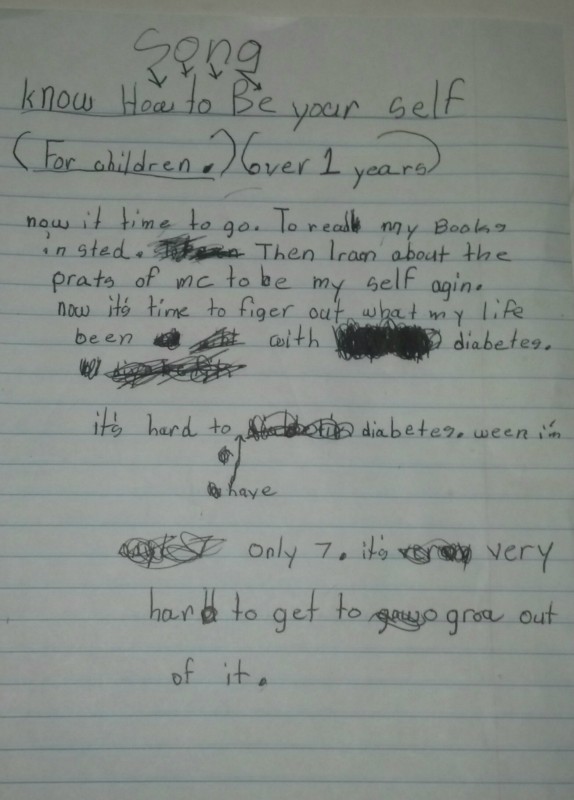 Song
know How to Be your self
(For children.) (over 1 years)
now it time to go. To read my Books
in sted. Then I ran about the
prats of me to be my self agin.
now it's time to figer out what my life
been with diabetes.
it's hard to diabetes. ween i'm
have
only 7. it's very
hard to get to groa out
of it.